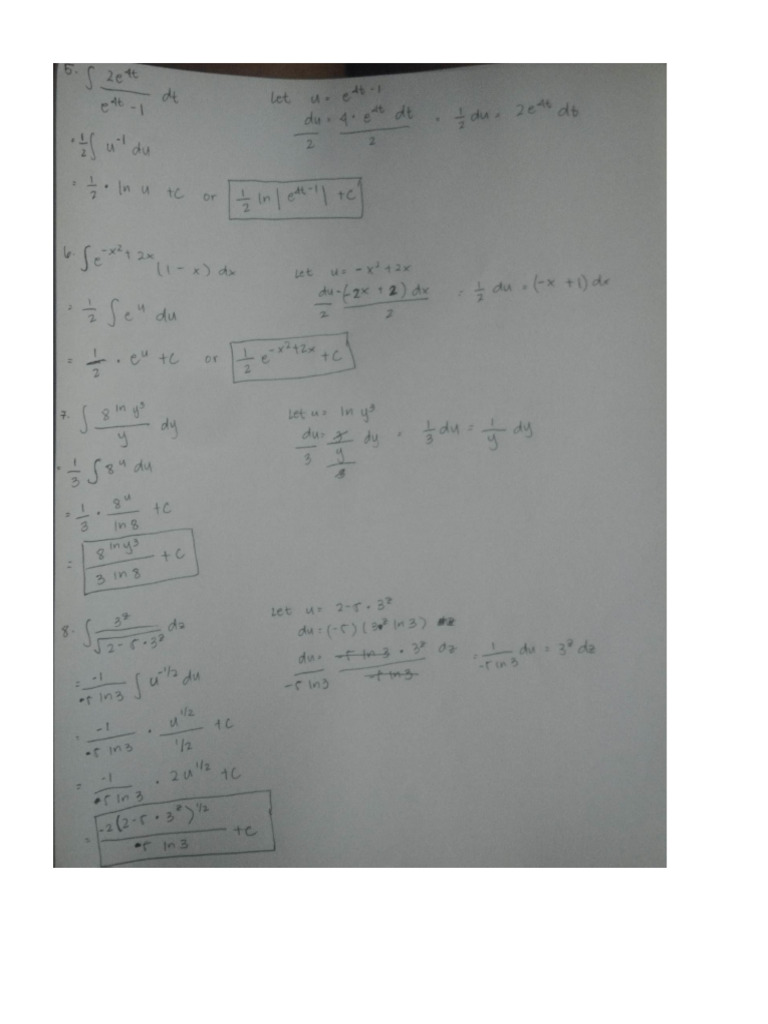 5. ∫ 2e^4t / e^4t -1 dt   Let u = e^4t -1
du/2 = 4 · e^4t dt / 2 = 1/2 du = 2e^4t dt
= 1/2 ∫ u^-1 du
= 1/2 · ln u + C or 1/2 ln |e^4t -1| + C
6. ∫ e^-x²+2x (1-x) dx   Let u = -x² + 2x
du/2 = (-2x + 2) dx / 2 = 1/2 du = (-x + 1) dx
= 1/2 ∫ e^u du
= 1/2 · e^u + C or 1/2 e^-x²+2x + C
7. ∫ 8^ln y³ / y dy   Let u = ln y³
du/3 = 3/y / 3 dy = 1/3 du = 1/y dy
= 1/3 ∫ 8^u du
= 1/3 · 8^u / ln 8 + C
= 8^ln y³ / 3 ln 8 + C
8. ∫ 3^z / √2-5·3^z dz   Let u = 2-5·3^z
du = (-5)(3^z ln 3) dz
= -1 / 5 ln 3 ∫ u^-1/2 du   du / -5 ln 3 = -5 ln 3 · 3^z / -5 ln 3 dz = 1 / -5 ln 3 du = 3^z dz
= -1 / 5 ln 3 · u^1/2 / 1/2 + C
= -1 / 5 ln 3 · 2u^1/2 + C
= -2(2-5·3^z)^1/2 / 5 ln 3 + C